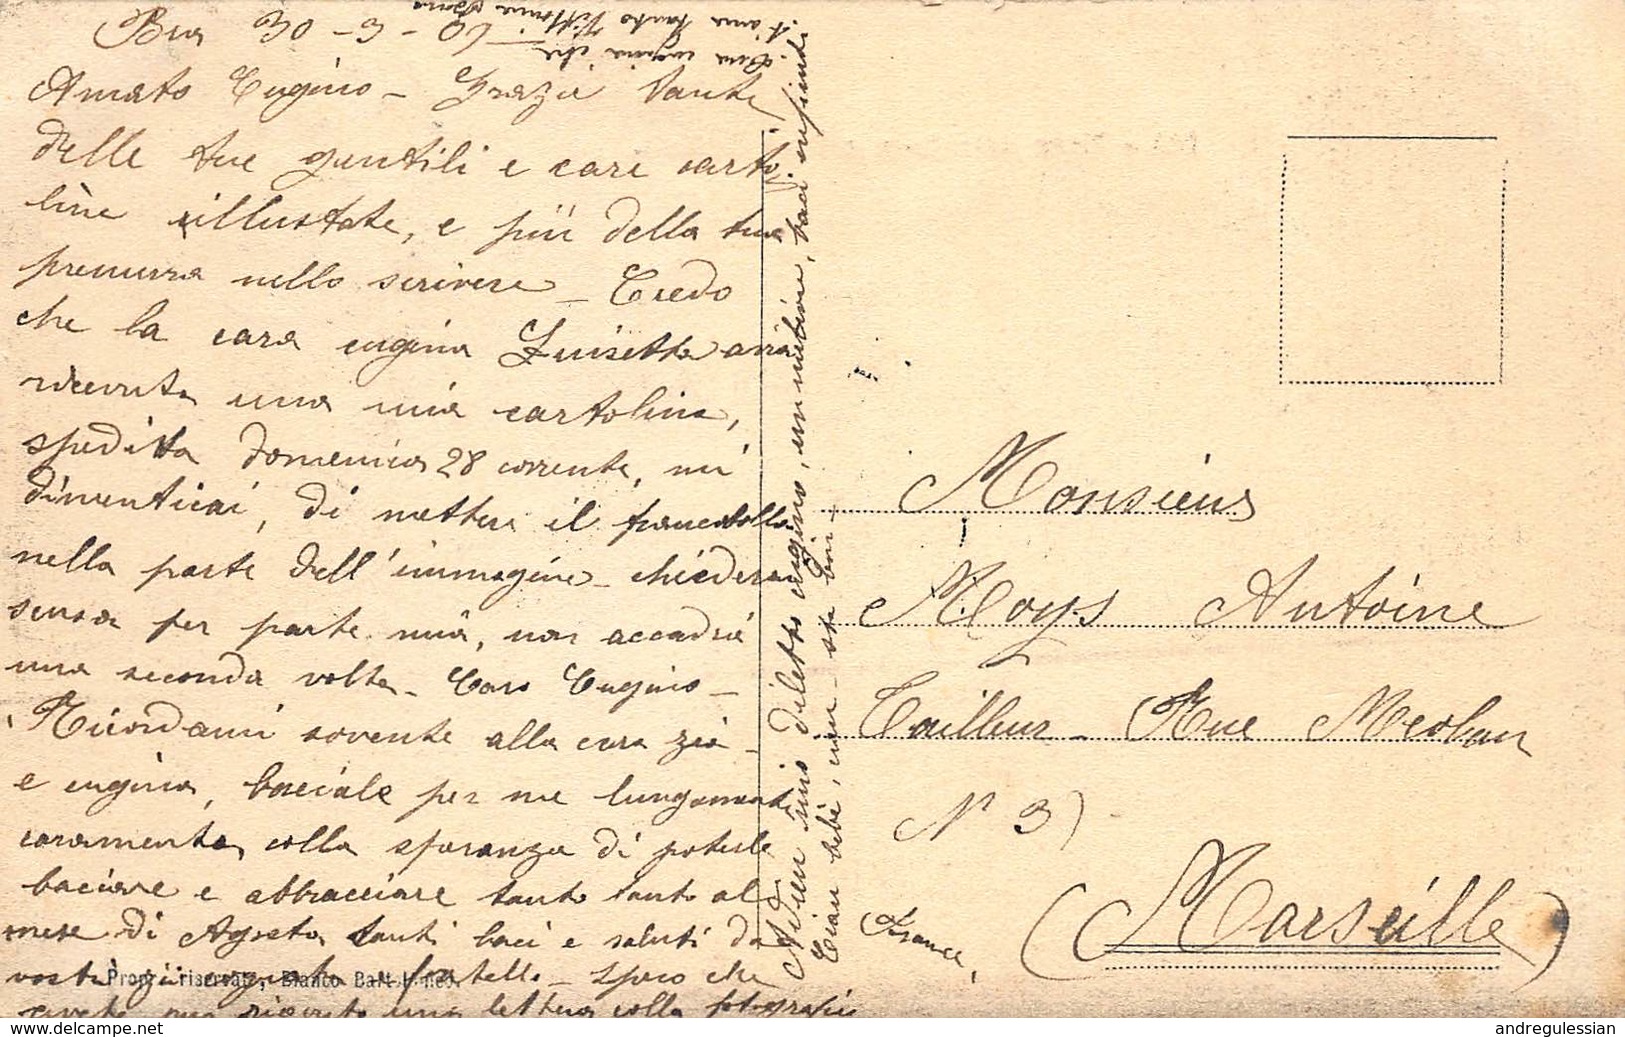 Bra 30-3-09
Amato Cugino - Grazie tante
delle tue gentili e care carto
line illustate, e più della tua
premurra nello scrivere - Credo
che la cara cugina Luisetta avrà
ricevuta una mia cartolina,
spedita domenica 28 corrente, mi
dimenticai, di mettere il francobollo
nella parte dell'immagine - chiedera
scusa per parte mia, non accadrà
una seconda volta - Caro Cugino -
Ricordami sovente alla cara zia -
e cugina, baciale per me lungamente
caramente, colla speranza di poterle
baciare e abbracciare tanto tanto al
mese di Agosto, tanti baci e saluti da
zii e fratello - Spero che
avrete ricevuto una lettera colla fotografia
Propr. riservata, Bianco Bart.
Addieu mio diletto cugino, un baci infiniti
Ciau bebè, ciau - sta bon -
Cara cugina che
t'ama tanto Vittoria
Monsieur
Moys Antoine
Tailleur - Rue Meolan
N 3)
(Marseille)
(France,
andregulessian